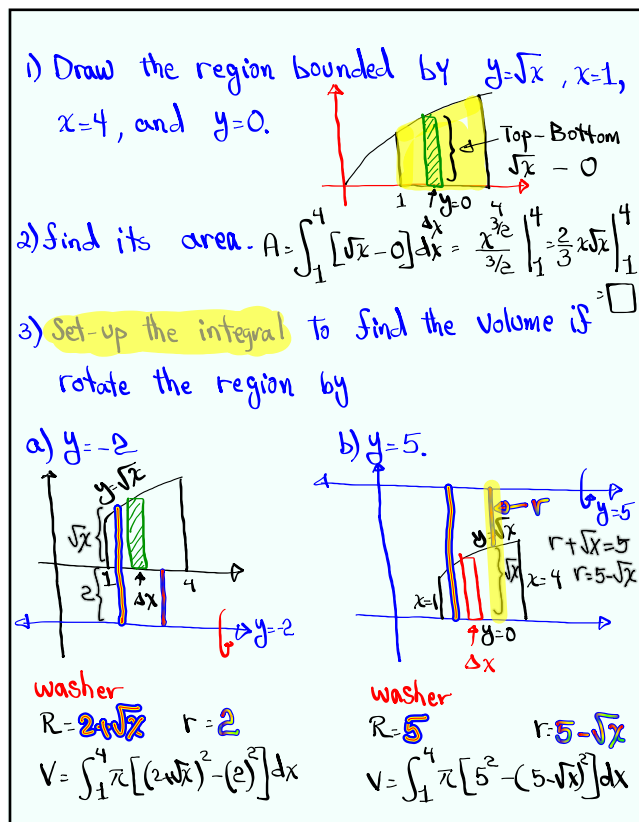 1) Draw the region bounded by y=√x, x=1,
x=4, and y=0.
Top-Bottom
√x - 0
1 Δx y=0 4
2) find its area. A=∫₁⁴[√x-0]dx = x^(3/2)/(3/2) |₁⁴ = 2/3 x√x |₁⁴
=□
3) Set-up the integral to find the volume if
rotate the region by
a) y=-2
y=√x
√x
1 Δx 4
2
y=-2
washer
R=2+√x r=2
V=∫₁⁴ π[(2+√x)²-(2)²]dx
b) y=5.
y=5
r
y=√x
r+√x=5
√x
x=1 x=4 r=5-√x
y=0
Δx
washer
R=5 r=5-√x
V=∫₁⁴ π[5²-(5-√x)²]dx